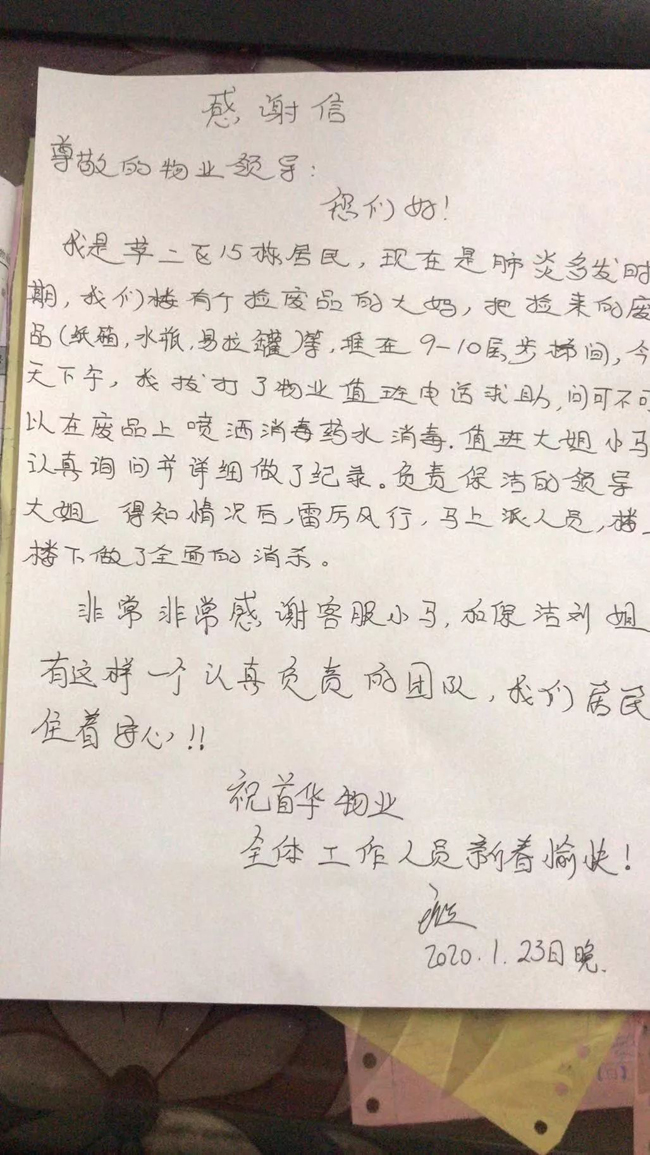 感谢信
尊敬的物业领导:
您们好!
我是草二区15栋居民,现在是肺炎多发时
期,我们楼有个捡废品的大妈,把捡来的废
品(纸箱,水瓶,易拉罐)等,堆在9-10层步梯间,今
天下午,我拔打了物业值班电话求助,问可不可
以在废品上喷洒消毒药水消毒.值班大姐小马
认真询问并详细做了纪录。负责保洁的领导
大姐 得知情况后,雷厉风行,马上派人员,楼上
楼下做了全面的消杀。
非常非常感谢客服小马,和保洁刘姐
有这样一个认真负责的团队,我们居民
住着安心!!
祝首华物业
全体工作人员新春愉快!
2020.1.23日晚.